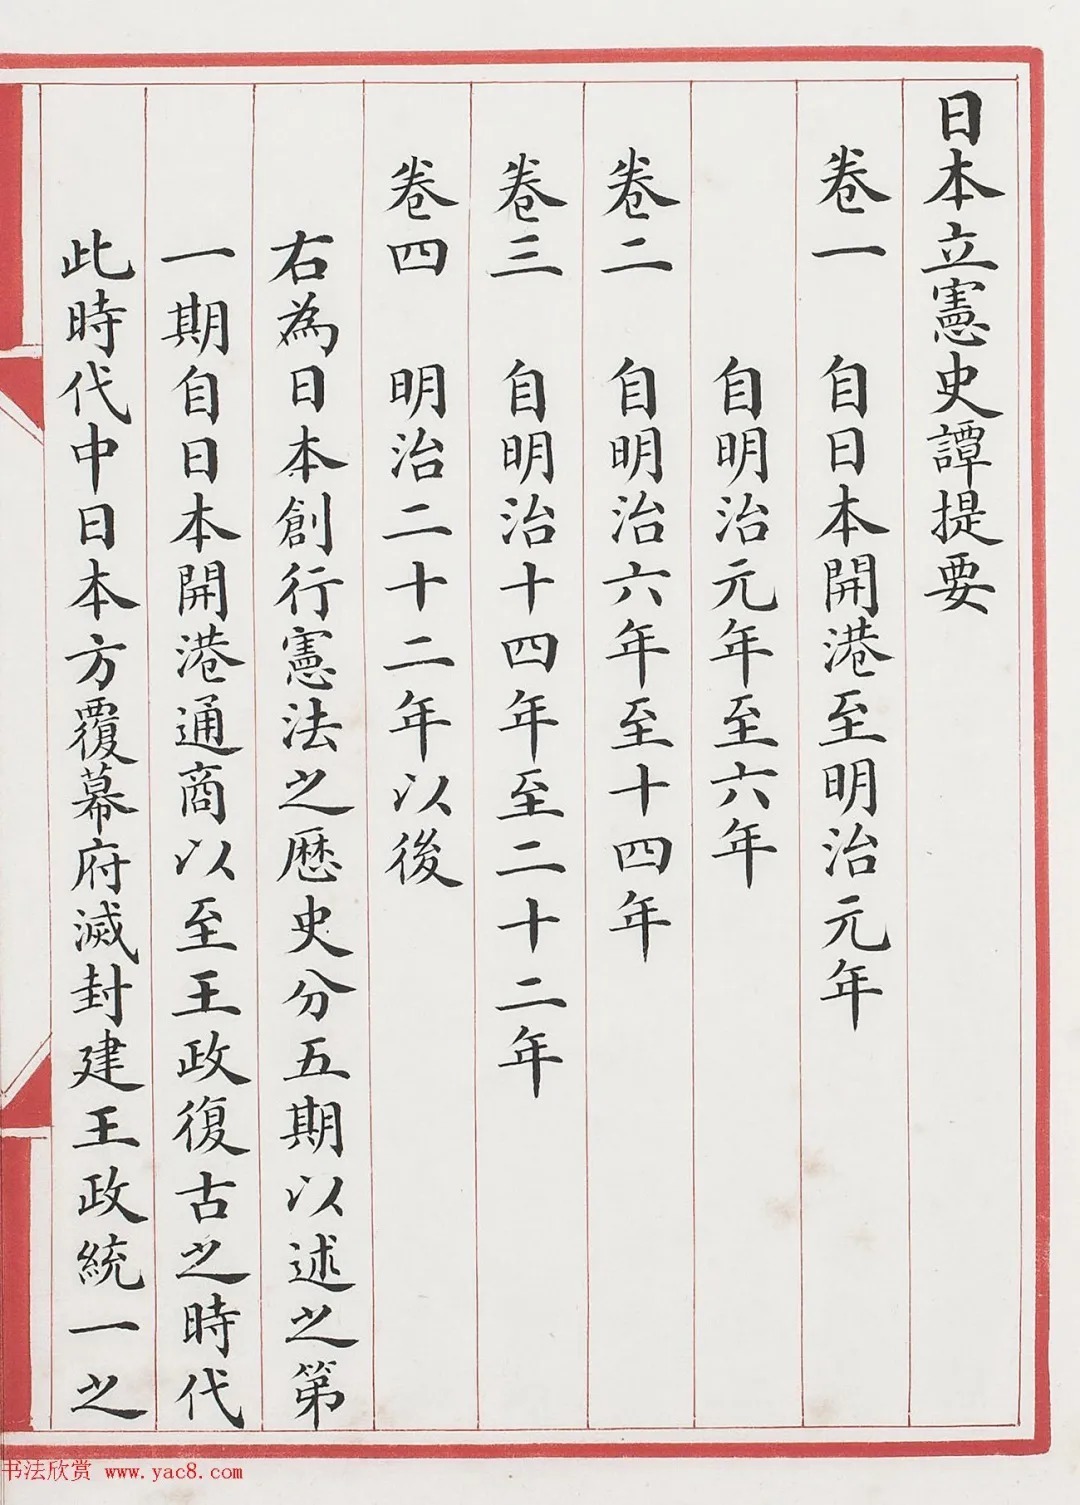 日本立憲史譚提要
卷一　自日本開港至明治元年
自明治元年至六年
卷二　自明治六年至十四年
卷三　自明治十四年至二十二年
卷四　明治二十二年以後
右為日本創行憲法之歷史分五期以述之第
一期自日本開港通商以至王政復古之時代
此時代中日本方覆幕府滅封建王政統一之
书法欣赏 www.yac8.com